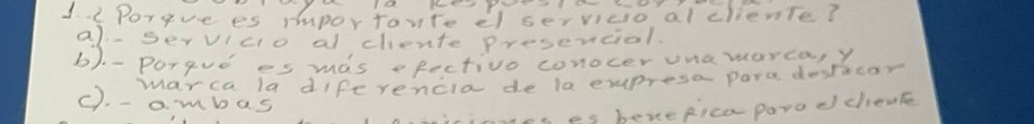 la respuesta
1.-¿ Porque es importante el servicio al cliente?
a).- Servicio al cliente presencial.
b).- Porqué es más efectivo conocer una marca, y
marca la diferencia de la empresa para destacar
c).- ambas
es benefica para el cliente